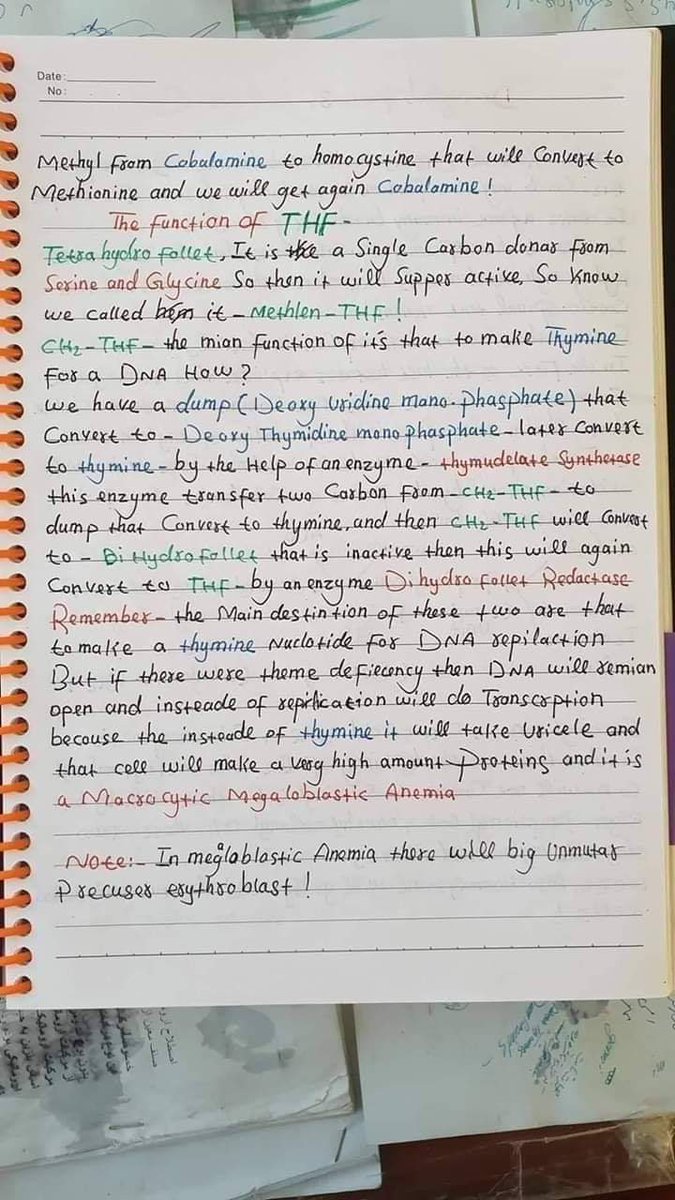 Date:
No:
Methyl from Cobalamine to homocystine that will Convert to
Methionine and we will get again Cobalamine!
The function of THF-
Tetrahydro follet, It is a Single Carbon donar from
Serine and Glycine So then it will Supper active, So know
we called it - Methlen-THF!
CH2-THF- the mian function of it's that to make Thymine
for a DNA How?
we have a dump (Deoxy Uridine mono.phasphate) that
Convert to - Deoxy Thymidine monophasphate - later Convert
to thymine - by the Help of an enzyme - thymudelate Synthetase
this enzyme transfer two Carbon from - CH2-THF - to
dump that Convert to thymine, and then CH2-THF will Convert
to - BiHydrofollet that is inactive then this will again
Convert to THF - by an enzyme Dihydro follet Redactase
Remember - the Main destintion of these two are that
to make a thymine Nuclotide for DNA repilaction
But if there were theme defiecency then DNA will remian
open and insteade of repilication will do Transcrption
becouse the insteade of thymine it will take Uricele and
that cell will make a very high amount Proteins and it is
a Macrocytic Megaloblastic Anemia
Note:- In megloblastic Anemia there will big Unmutar
Precuser erythroblast!